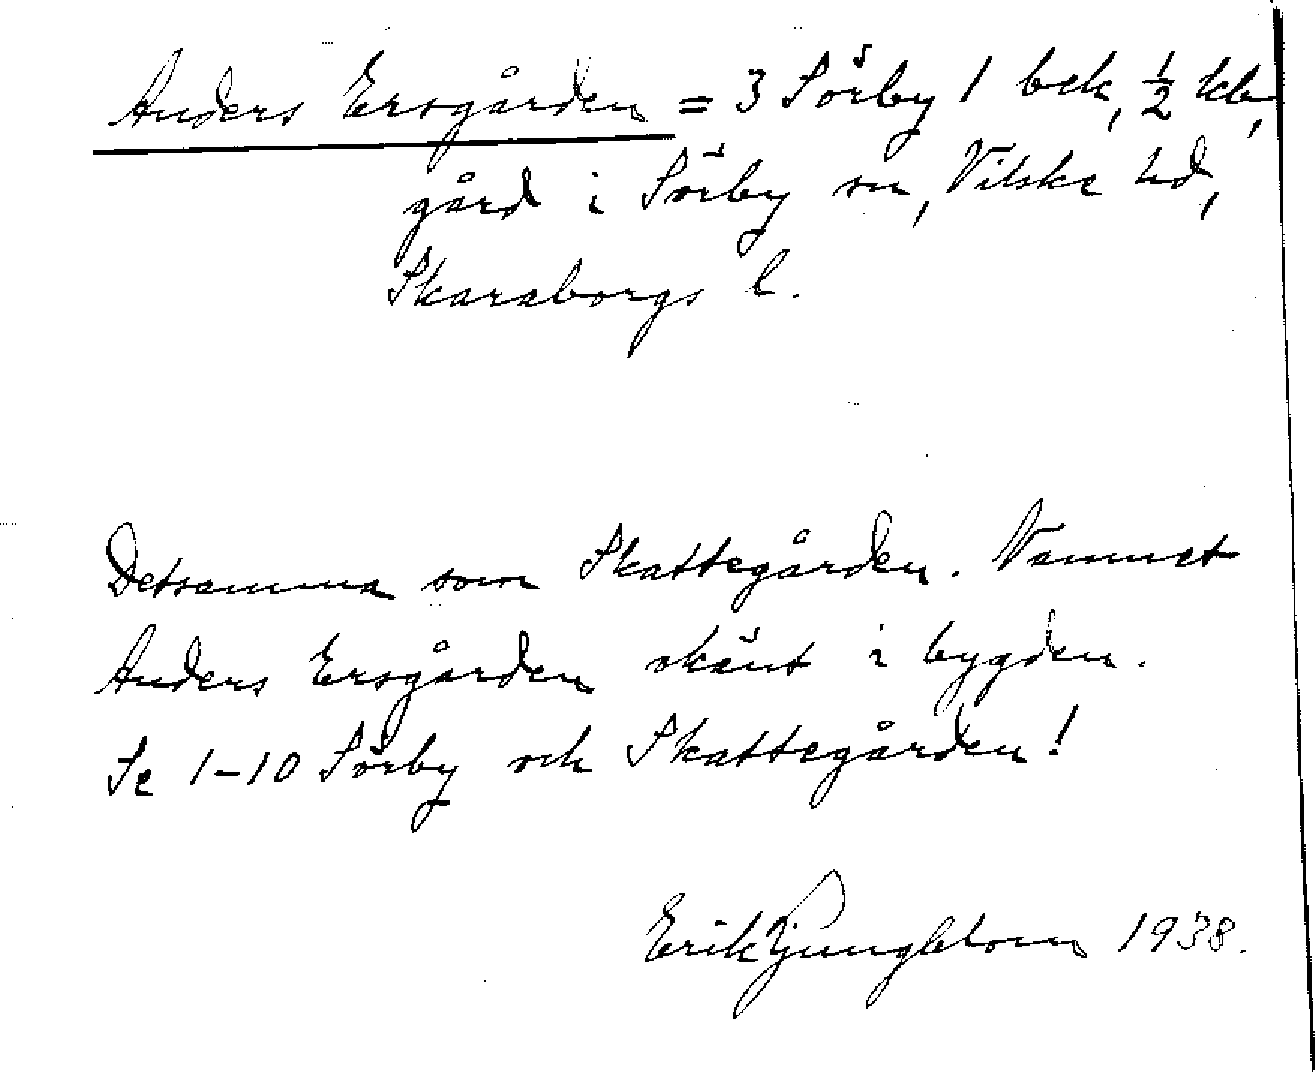 Anders Ersgården = 3 Sörby 1 bek, ½ kb,
gård i Sörby sn, Vilske hd,
Skaraborgs l.
Detsamma som Skattegården. Namnet
Anders Ersgården okänt i bygden.
Se 1-10 Sörby och Skattegården!
Erik Ljungblom 1938.